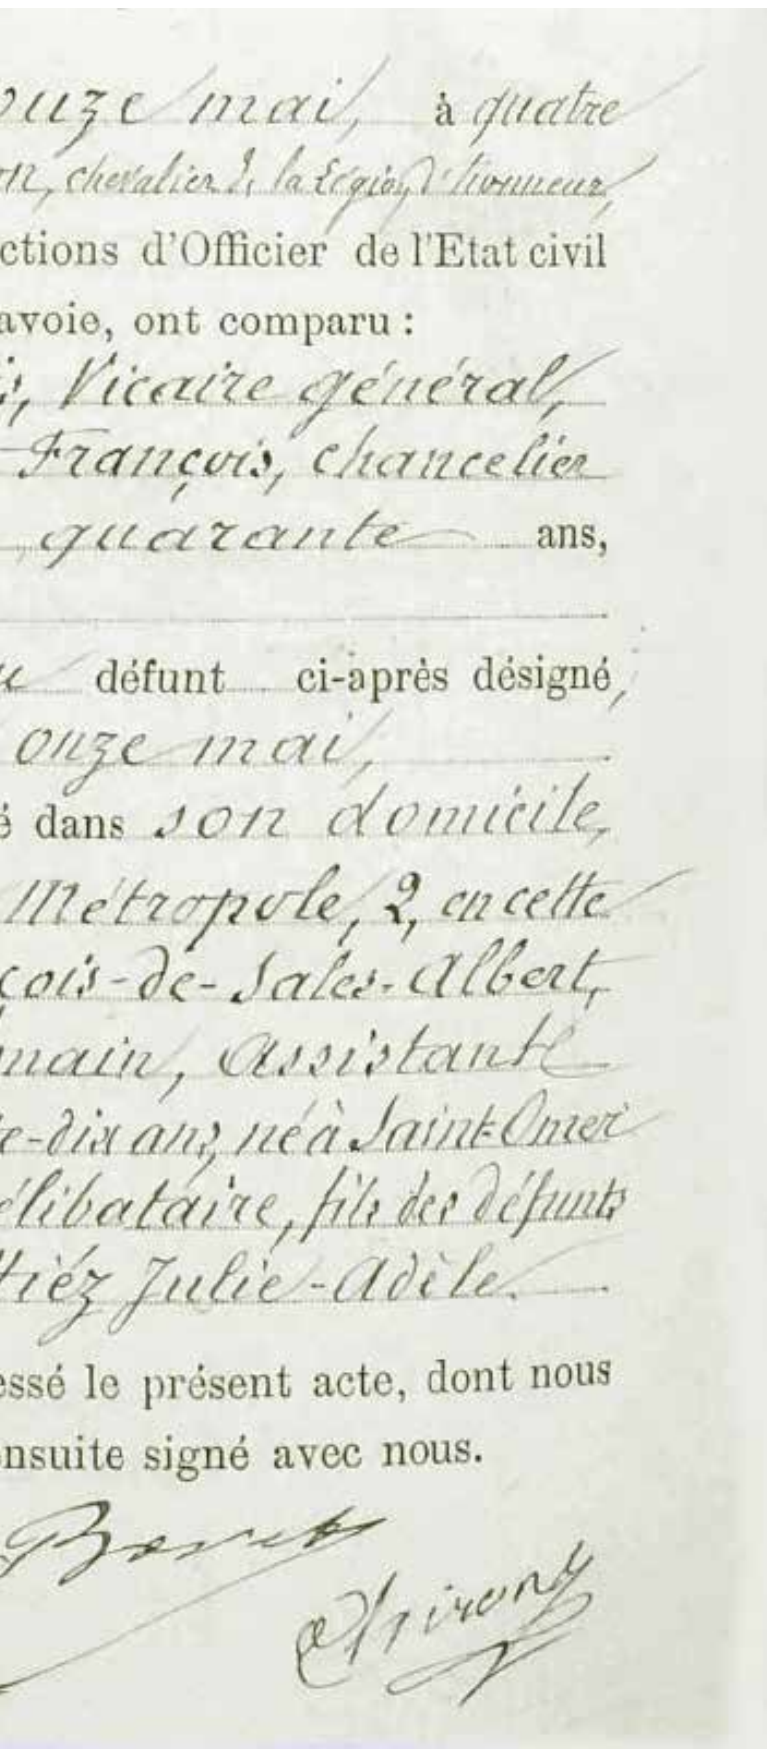 ouze mai, à quatre
on, chevalier de la Légion d'honneur,
ctions d'Officier de l'Etat civil
avoie, ont comparu :
is, Vicaire général,
François, chancelier
quarante ans,
u défunt ci-après désigné,
onze mai,
é dans son domicile,
Métropole, 2, en cette
çois-de-Sales-Albert,
main, Assistant
te-dix ans, né à Saint-Omer
élibataire, fils des défunts
tiéz Julie-Adèle.
essé le présent acte, dont nous
ensuite signé avec nous.